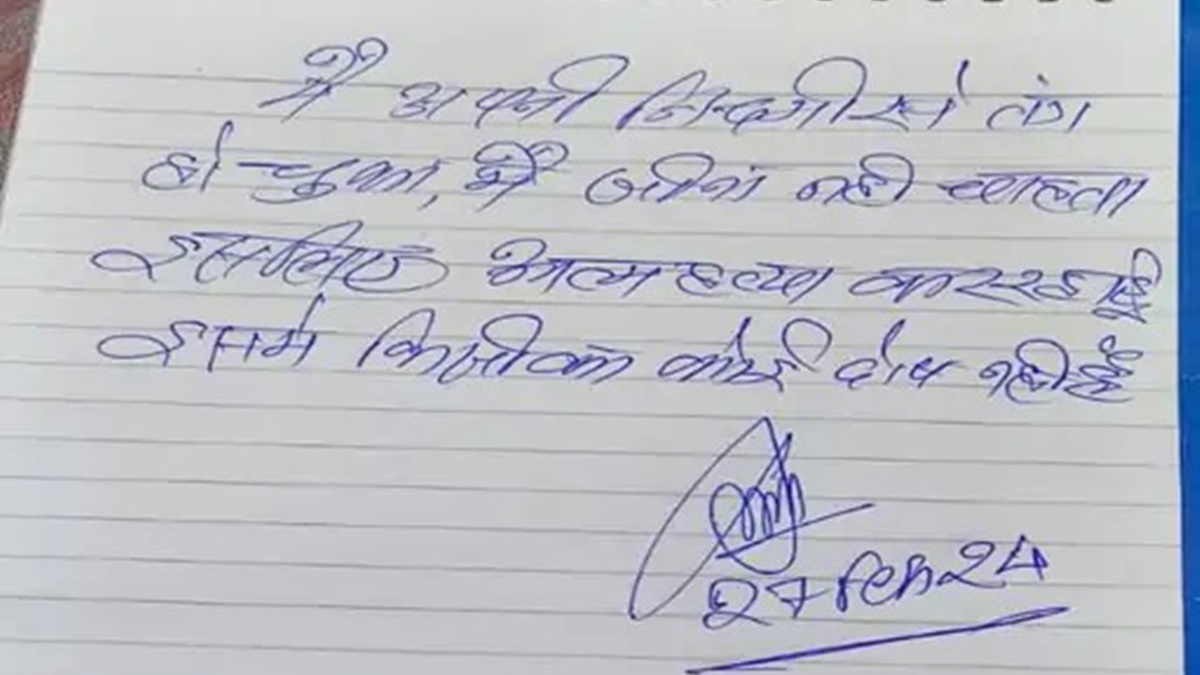 मैं अपनी जिन्दगी से तंग
हो चुका, मैं जीना नही चाहता
इसलिए आत्महत्या कर रहा हूँ
इसमे किसी का कोई दोष नही है
27 Feb 24